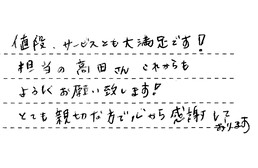 値段、サービスとも大満足です!
担当の高田さん これからも
よろしくお願い致します!
とても親切な方で心から感謝しております